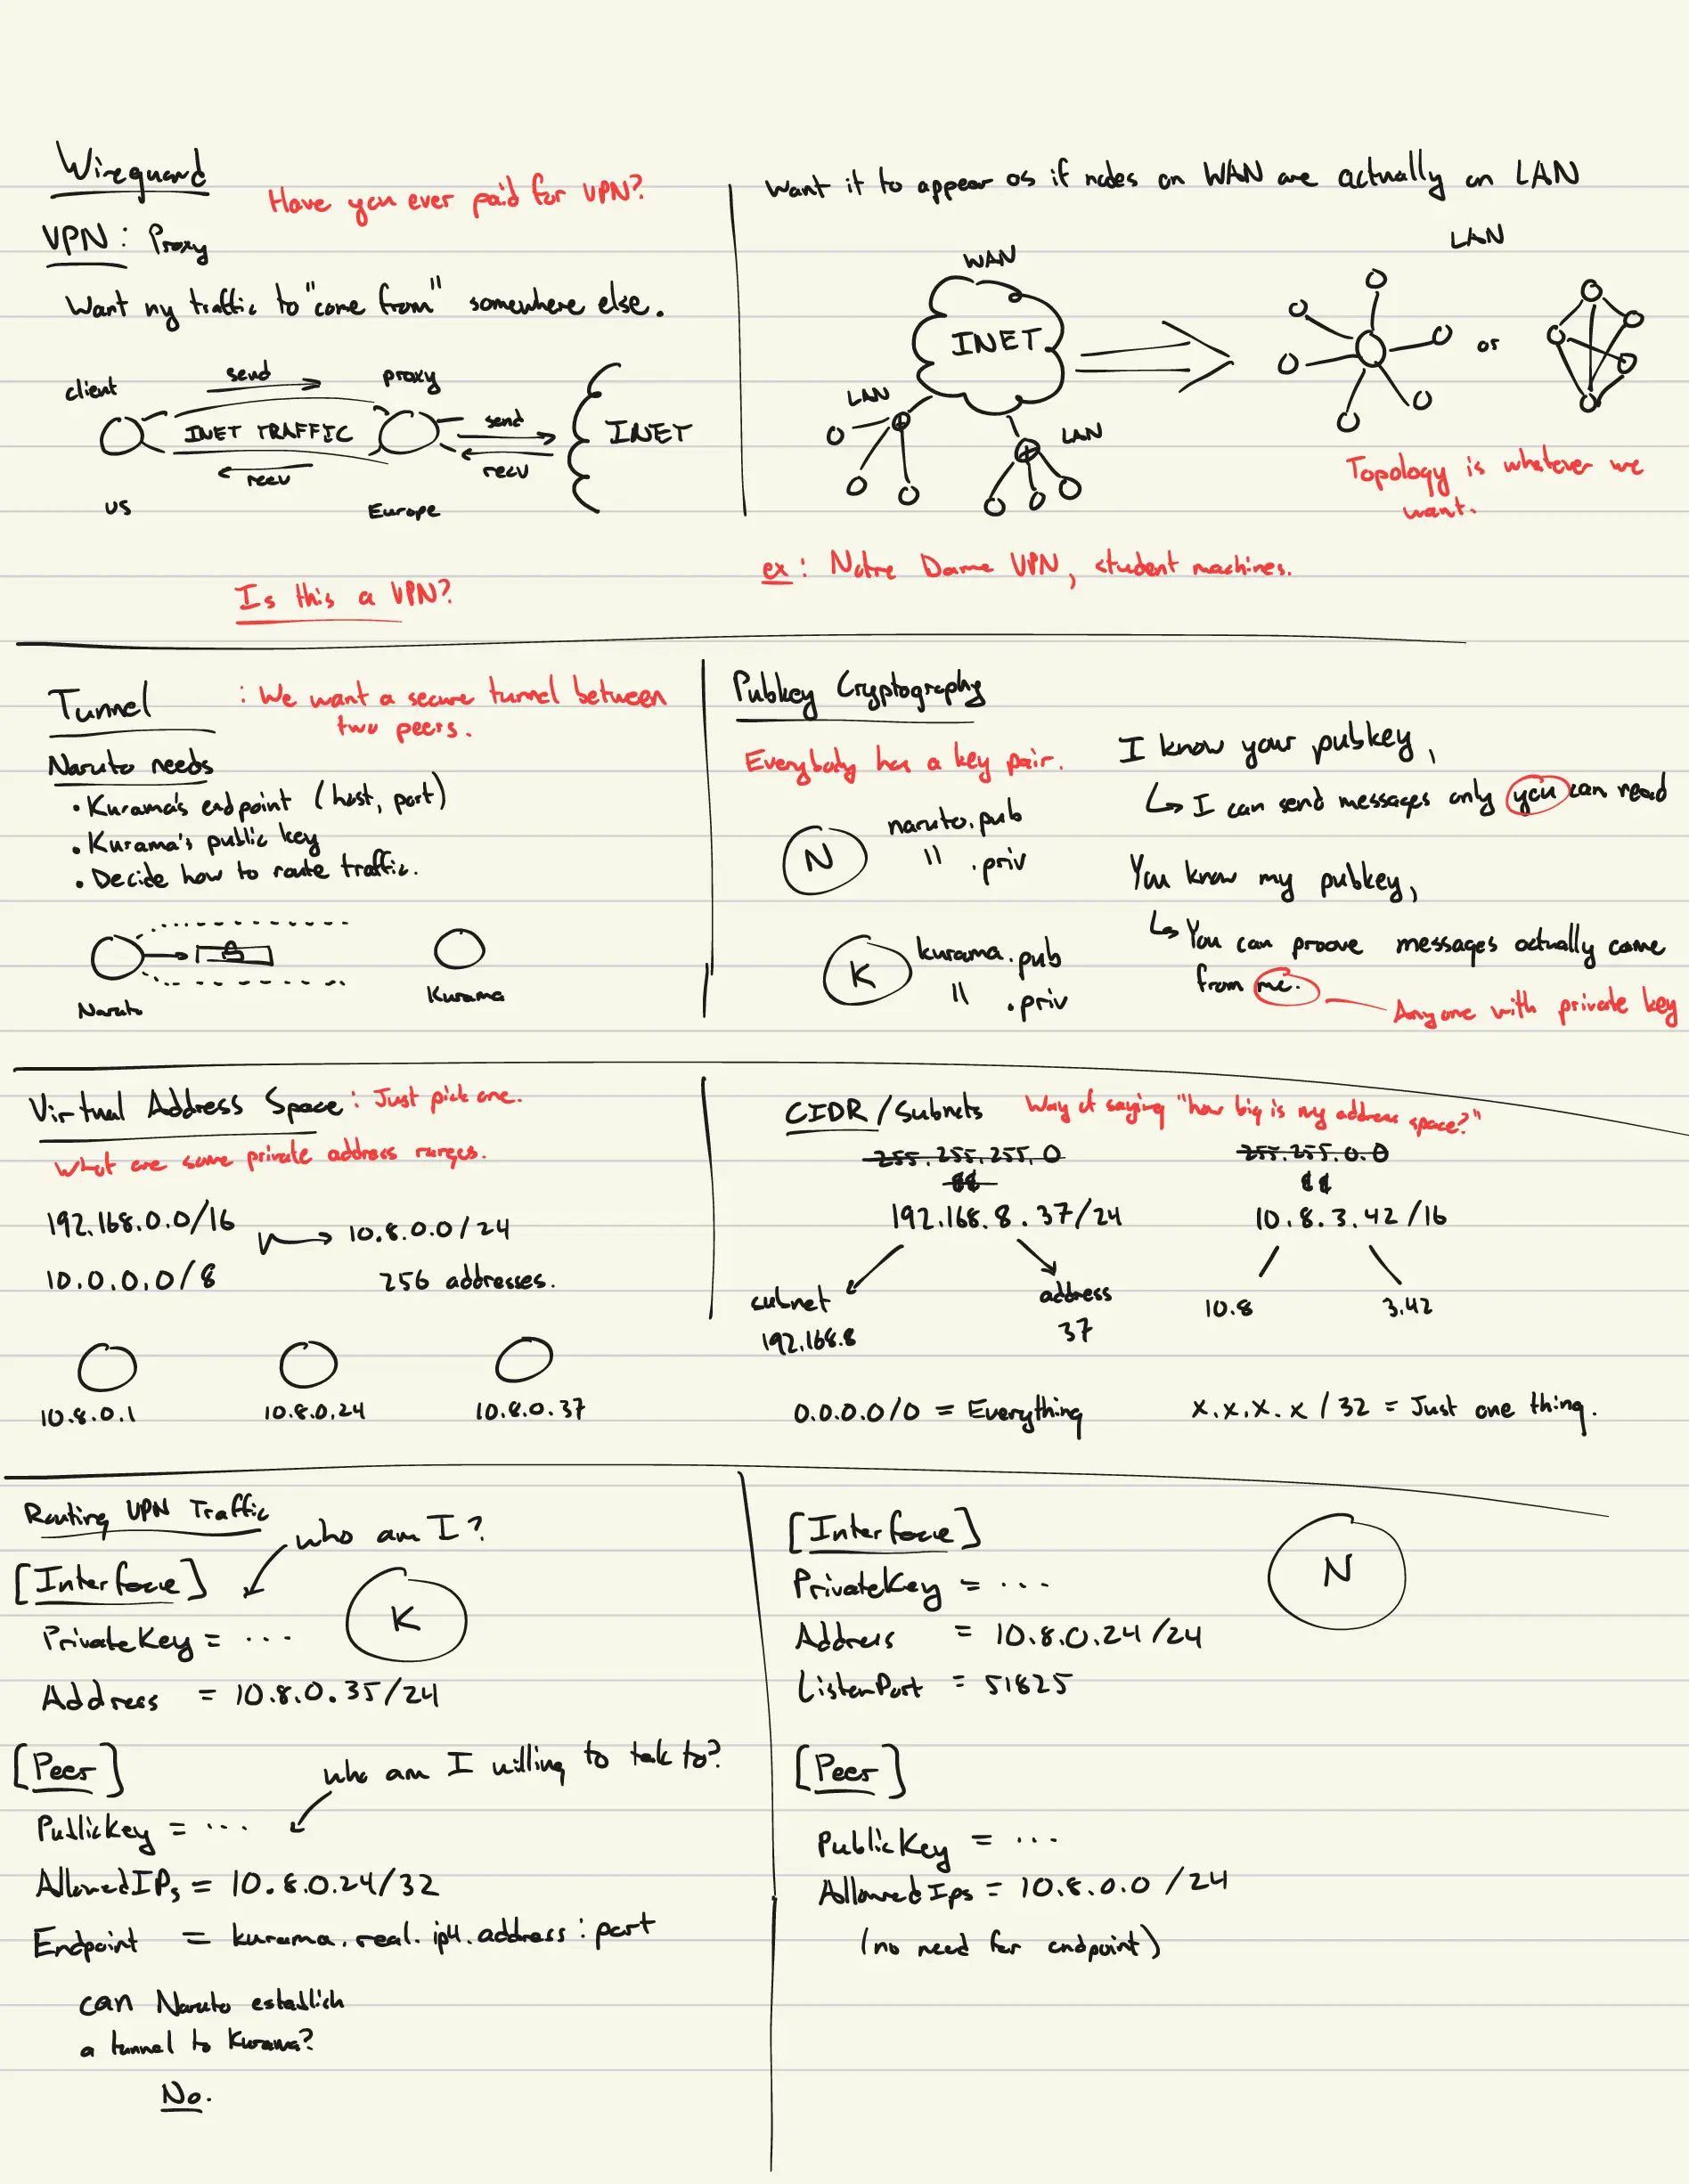 Wireguard
Have you ever paid for VPN?
VPN: Proxy
Want my traffic to "come from" somewhere else.
client
send
proxy
INET TRAFFIC
send
INET
recv
recv
US
Europe
Is this a VPN?
Want it to appear as if nodes on WAN are actually on LAN
WAN
LAN
INET
or
LAN
LAN
Topology is whatever we
want.
ex: Notre Dame VPN, student machines.
Tunnel
: We want a secure tunnel between
two peers.
Naruto needs
• Kurama's endpoint (host, port)
• Kurama's public key
• Decide how to route traffic.
Naruto
Kurama
Pubkey Cryptography
Everybody has a key pair.
N
naruto.pub
" .priv
K
kurama.pub
" .priv
I know your pubkey,
↳ I can send messages only you can read
You know my pubkey,
↳ You can proove messages actually come
from me.
Anyone with private key
Virtual Address Space: Just pick one.
What are some private address ranges.
192.168.0.0/16
10.8.0.0/24
10.0.0.0/8
256 addresses.
10.8.0.1
10.8.0.24
10.8.0.37
CIDR/Subnets
Way of saying "how big is my address space?"
255.255.255.0
255.255.0.0
192.168.8.37/24
10.8.3.42/16
subnet
address
192.168.8
37
10.8
3.42
0.0.0.0/0 = Everything
x.x.x.x/32 = Just one thing.
Routing VPN Traffic
who am I?
[Interface]
K
PrivateKey = ...
Address = 10.8.0.35/24
[Peer]
who am I willing to talk to?
PublicKey = ...
AllowedIPs = 10.8.0.24/32
Endpoint = kurama.real.ip4.address:port
can Naruto establish
a tunnel to Kurama?
No.
[Interface]
N
PrivateKey = ...
Address = 10.8.0.24/24
ListenPort = 51825
[Peer]
PublicKey = ...
AllowedIps = 10.8.0.0/24
(no need for endpoint)